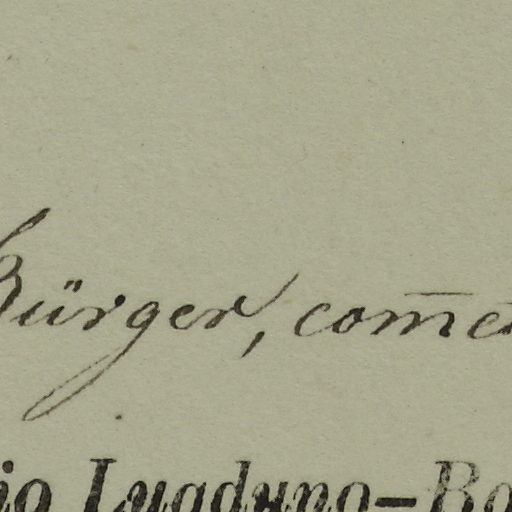 Bürger, com̅e
io Lugduno-Ba